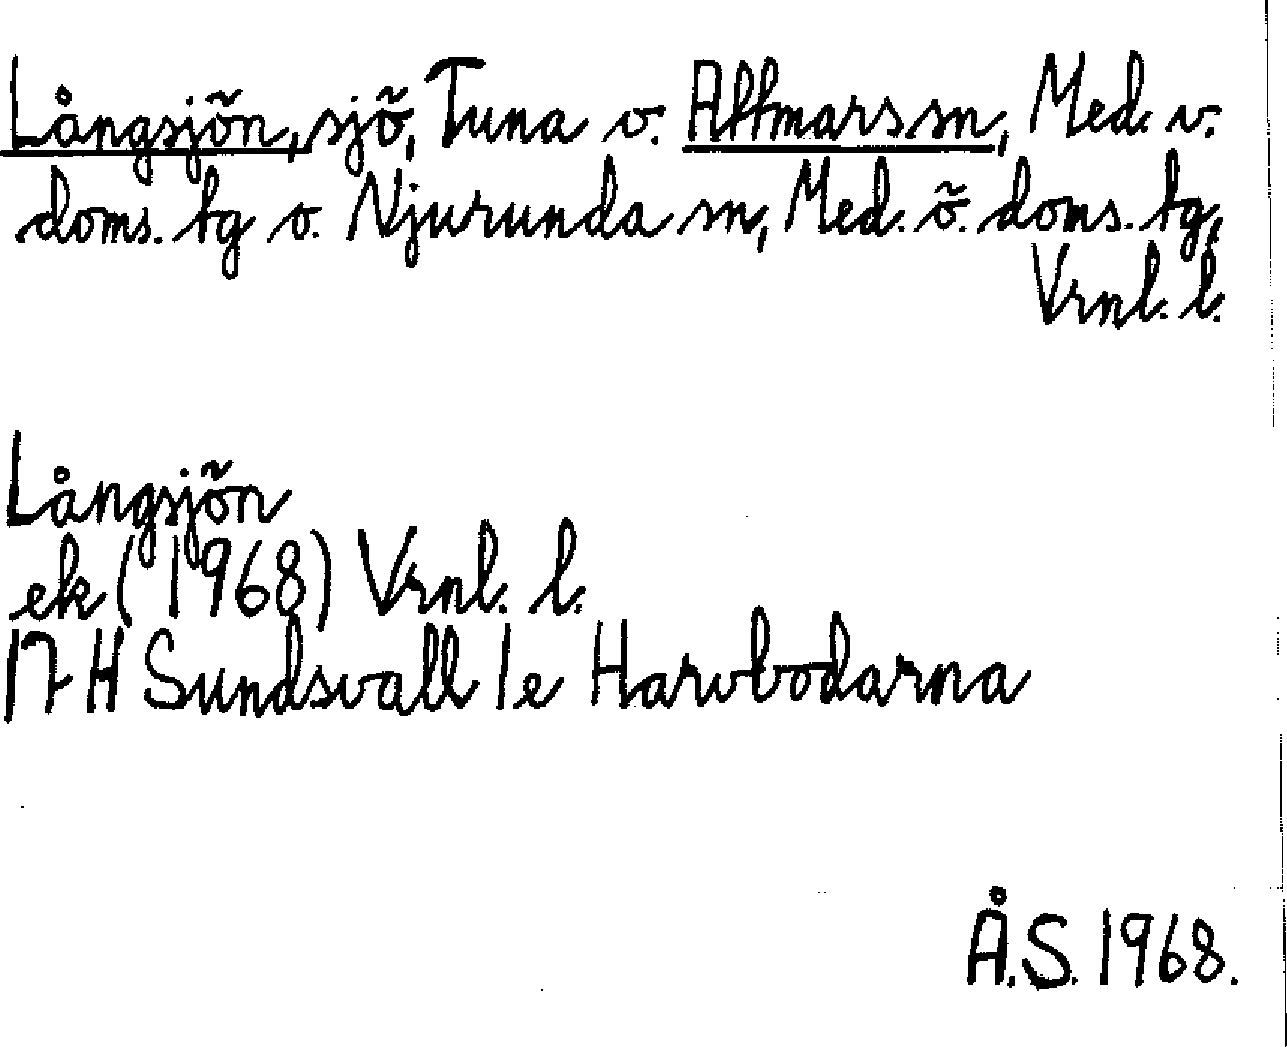 Långsjön, sjö, Tuna o. Attmars sn, Med. v.
doms. tg o. Njurunda sn, Med. ö. doms. tg,
Vrnl. l.
Långsjön
ek (1968) Vrnl. l.
17 H Sundsvall 1e Harvbodarna
Å.S. 1968.